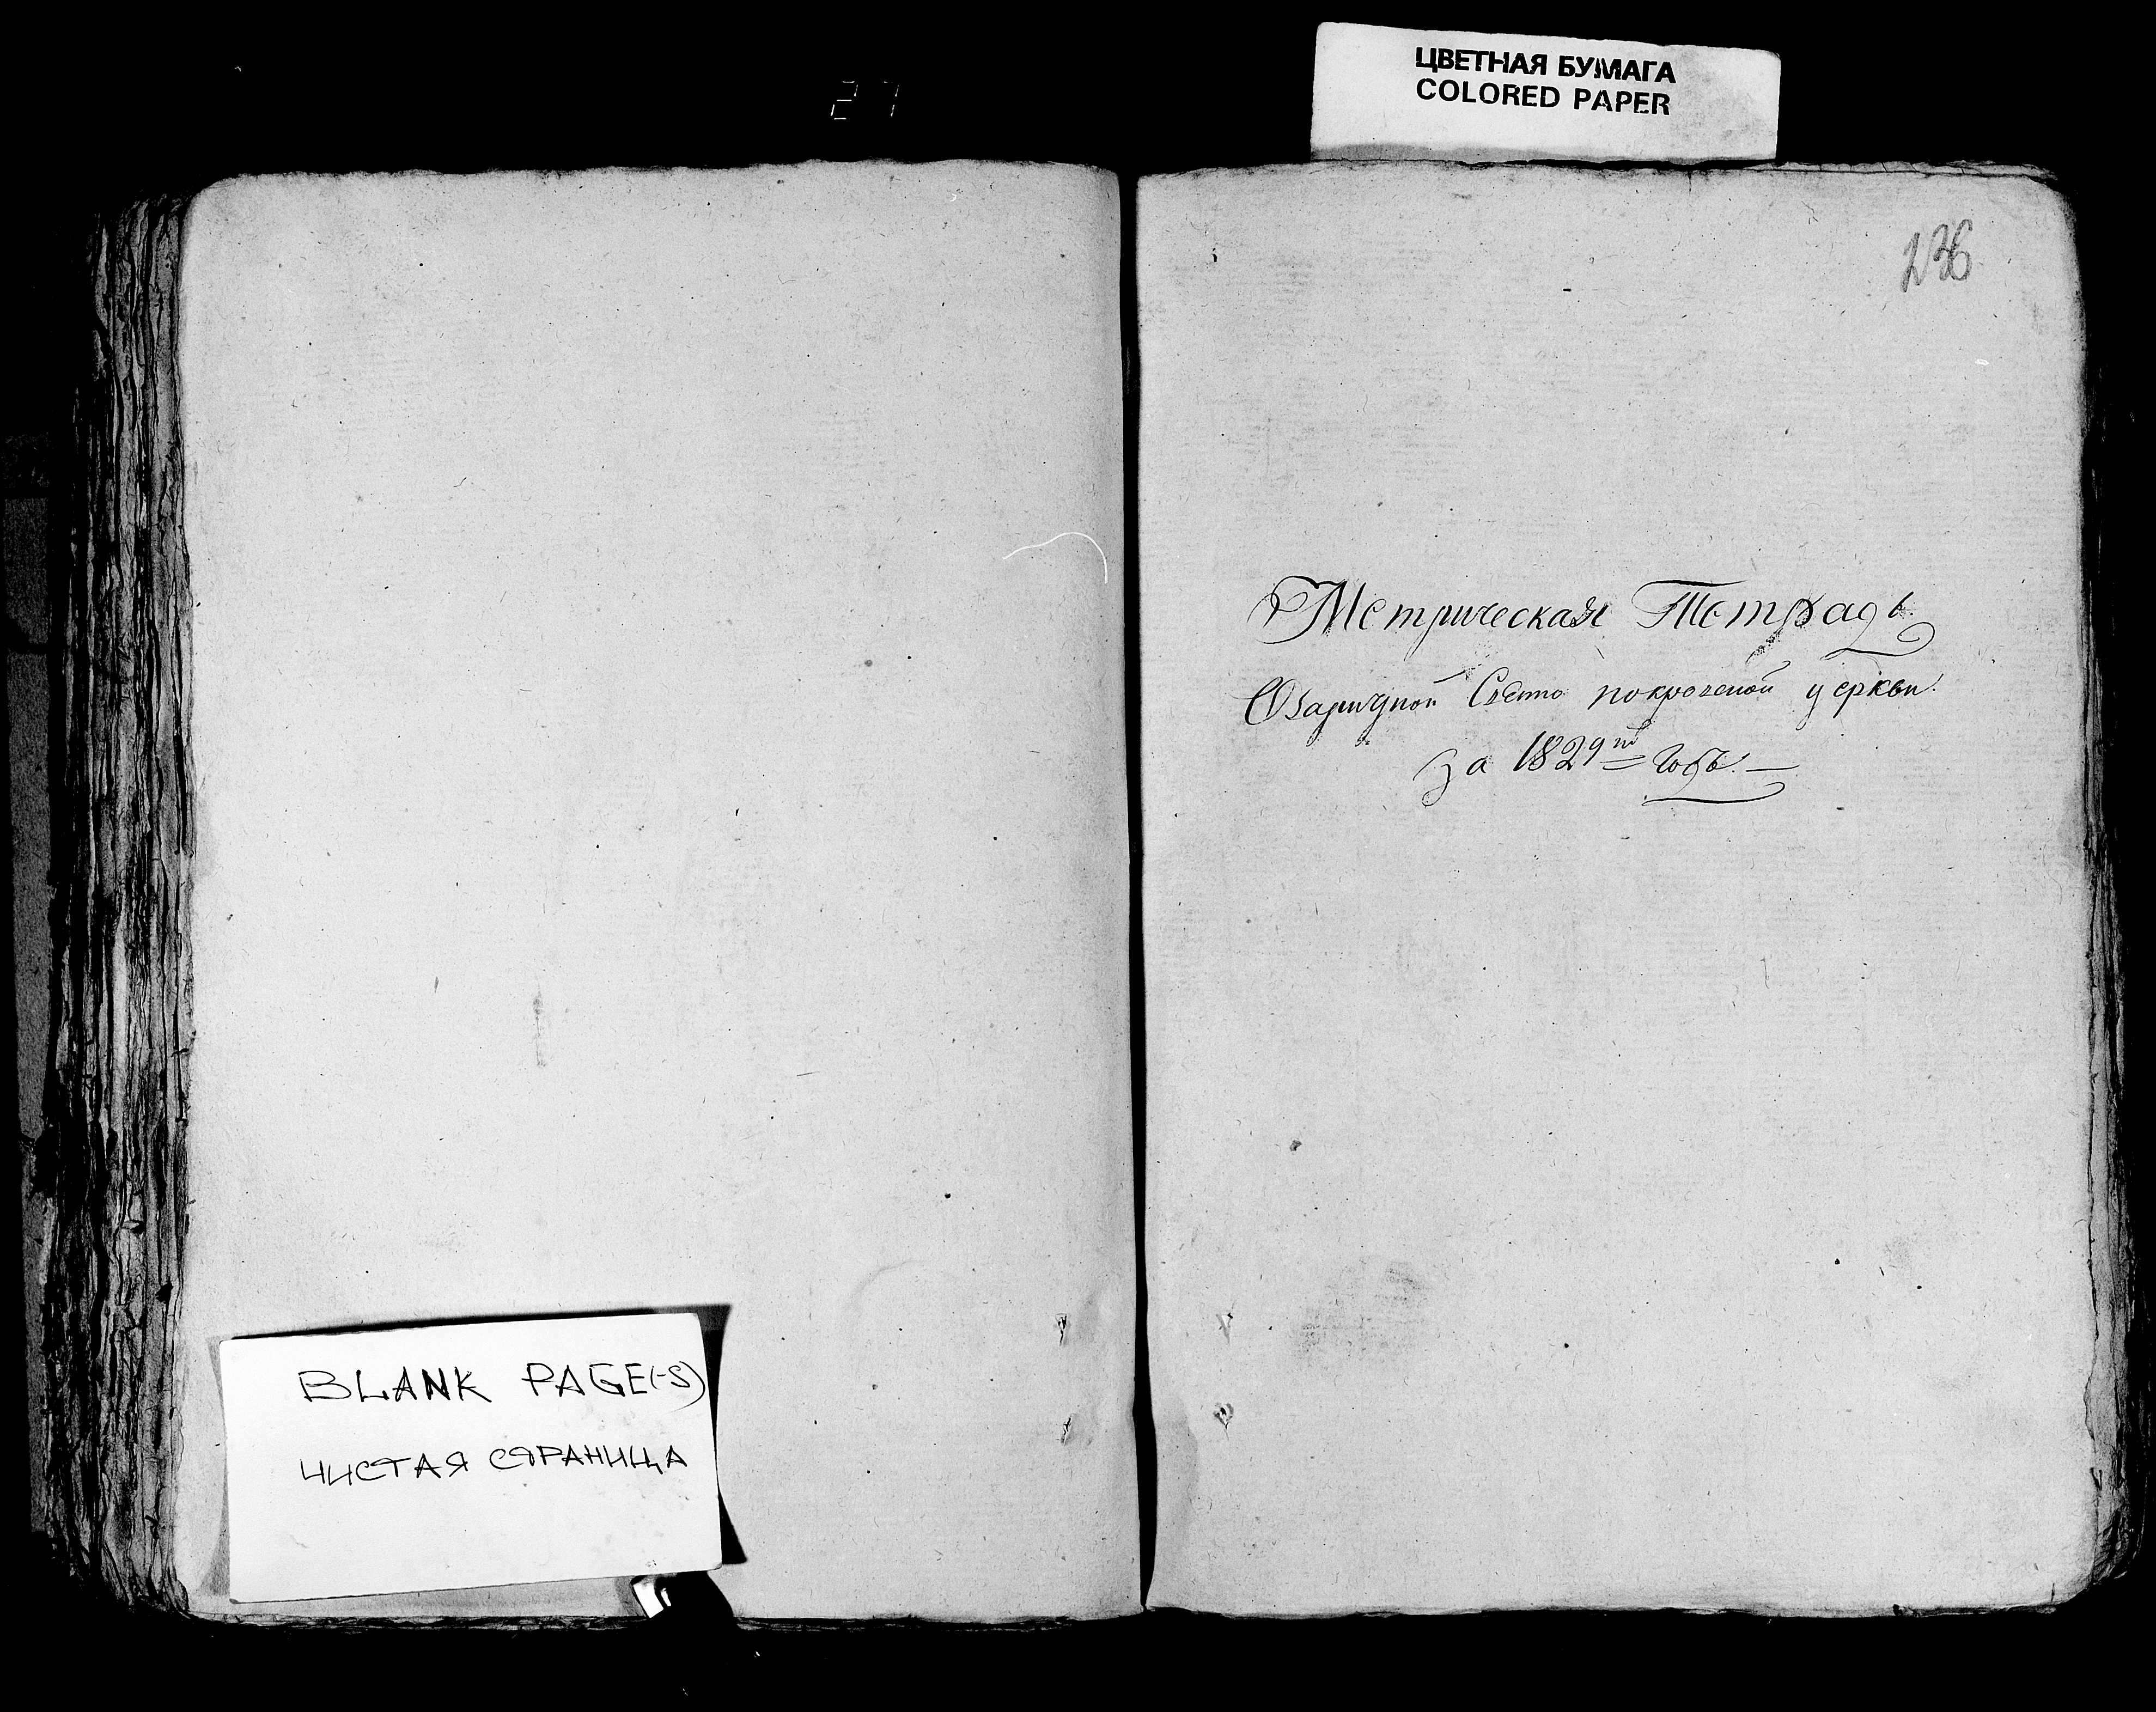 27
ЦВЕТНАЯ БУМАГА
COLORED PAPER
236
Метрическая Тетрадь.
Свято покровской церкви.
за 1829й годъ. —
BLANK PAGE(-S)
ЧИСТАЯ СТРАНИЦА